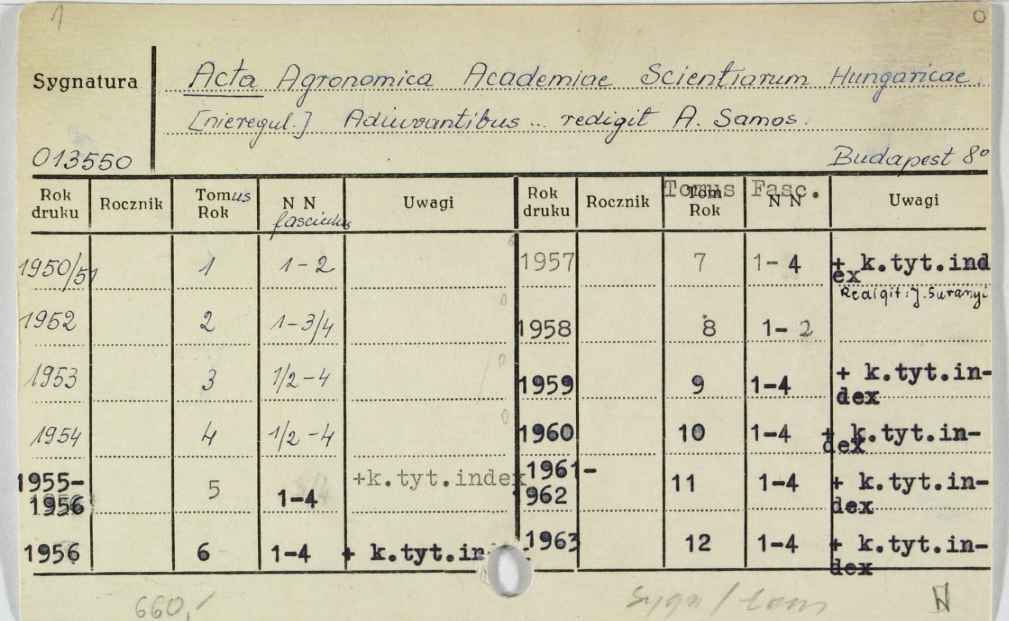 1
Sygnatura
Acta Agronomica Academiae Scientiarum Hungaricae.
[nieregul.] Adiuvantibus ... redigit A. Somos.
013550
Budapest 8°
Rok druku Rocznik Tomus Rok N N fasciculus Uwagi Rok druku Rocznik Tom Rok Tomus N N Fasc. Uwagi
1950/51 1 1-2
1952 2 1-3/4
1953 3 1/2-4
1954 4 1/2-4
1955-1956 5 1-4 +k.tyt.index
1956 6 1-4 + k.tyt.in-
1957 7 1-4 + k.tyt.index
Redigit: J. Suranyi
1958 8 1-2
1959 9 1-4 + k.tyt.in-
dex
1960 10 1-4 + k.tyt.in-
dex
1961-
962 11 1-4 + k.tyt.in-
dex
1963 12 1-4 + k.tyt.in-
dex
660,-
sygn / tom
N